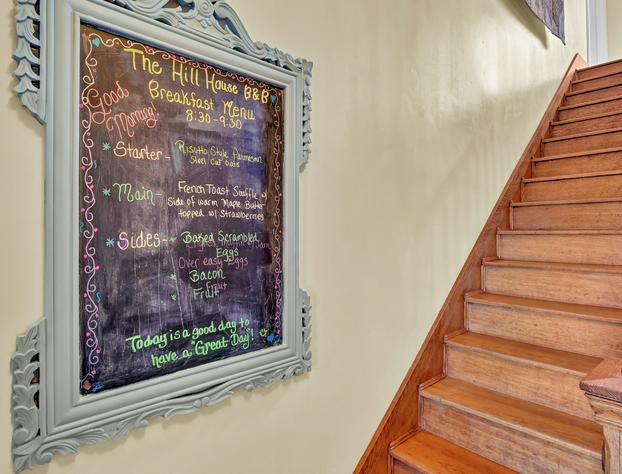 The Hill House B&B
Breakfast Menu
8:30-9:30
Good
Morning!
Starter - Risotto Style Parmesan
Steel Cut oats
Main - French Toast Souffle w/
Side of warm Maple Butter
topped w/ Strawberries
Sides - Baked Scrambled
Eggs
Over easy Eggs
Bacon
Fruit
Fruit
Today is a good day to
have a "Great Day"!